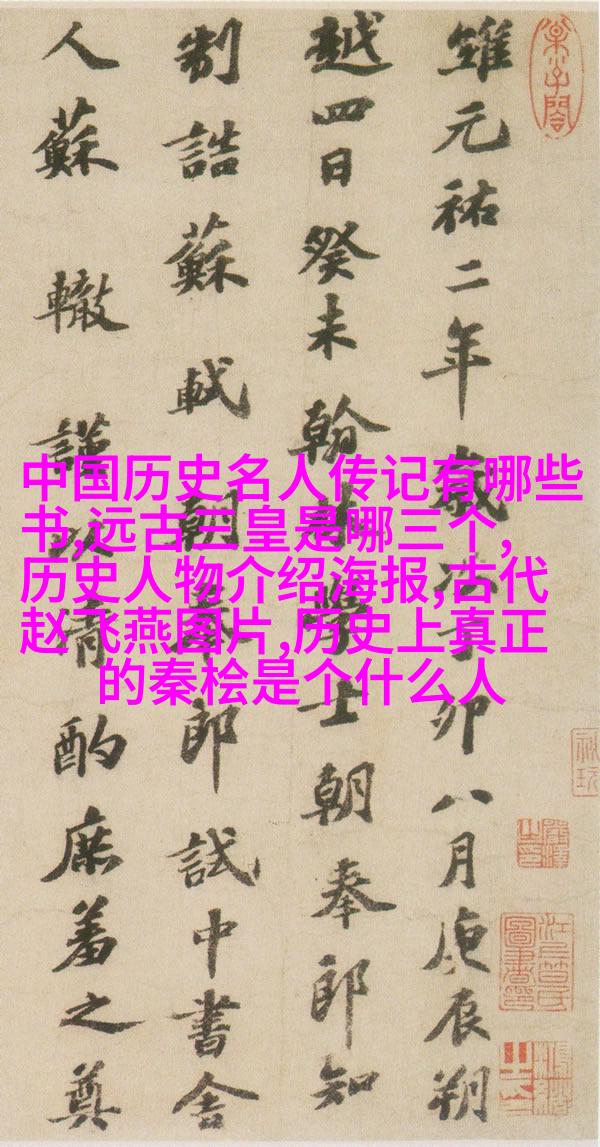 維元祐二年歲次丁卯八月庚辰朔
越四日癸未翰林學士朝奉郎知
制誥蘇軾朝奉郎試中書舍
人蘇轍謹以清酌庶羞之奠
中国历史名人传记有哪些
书,远古三皇是哪三个,
历史人物介绍海报,古代
赵飞燕图片,历史上真正
的秦桧是个什么人
江上笪氏圖書印